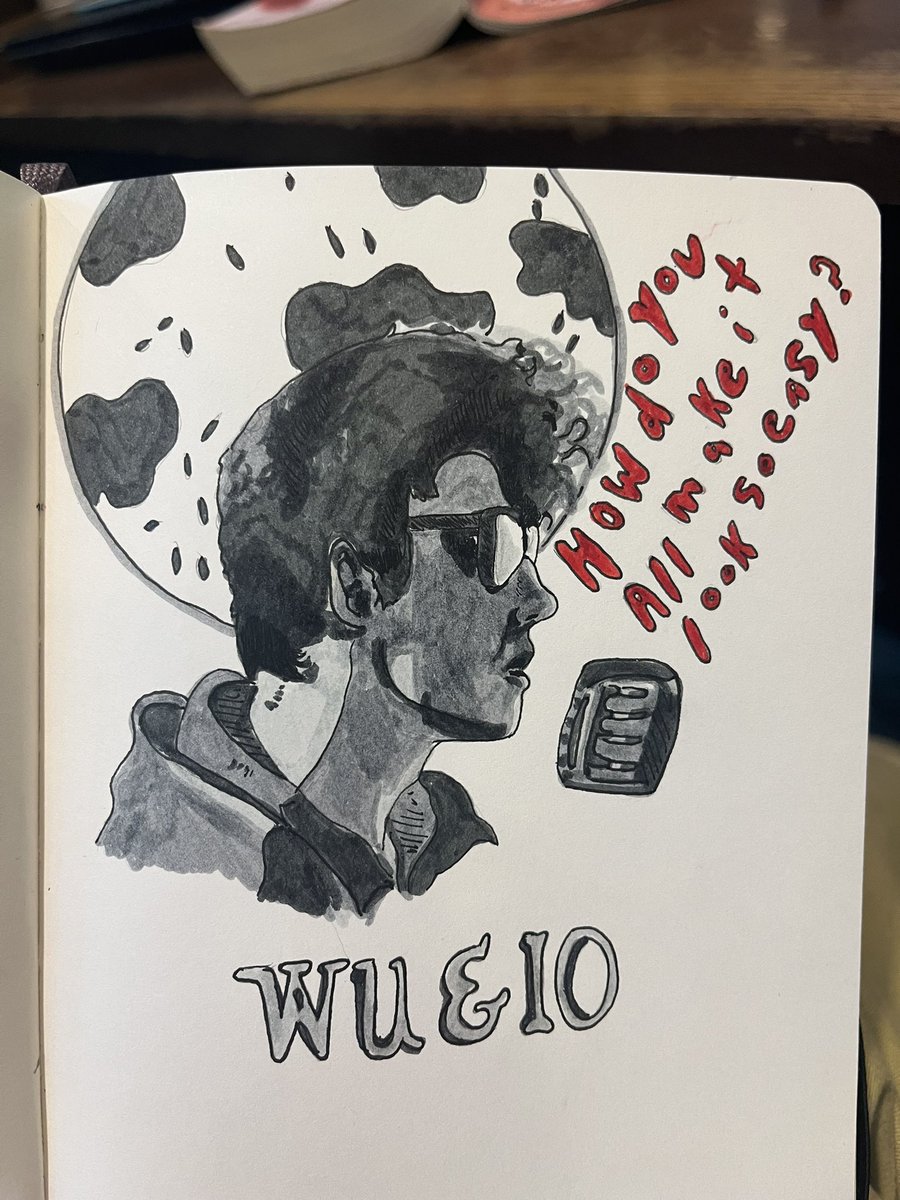 How do you
All make it
look so easy?
WU & IO